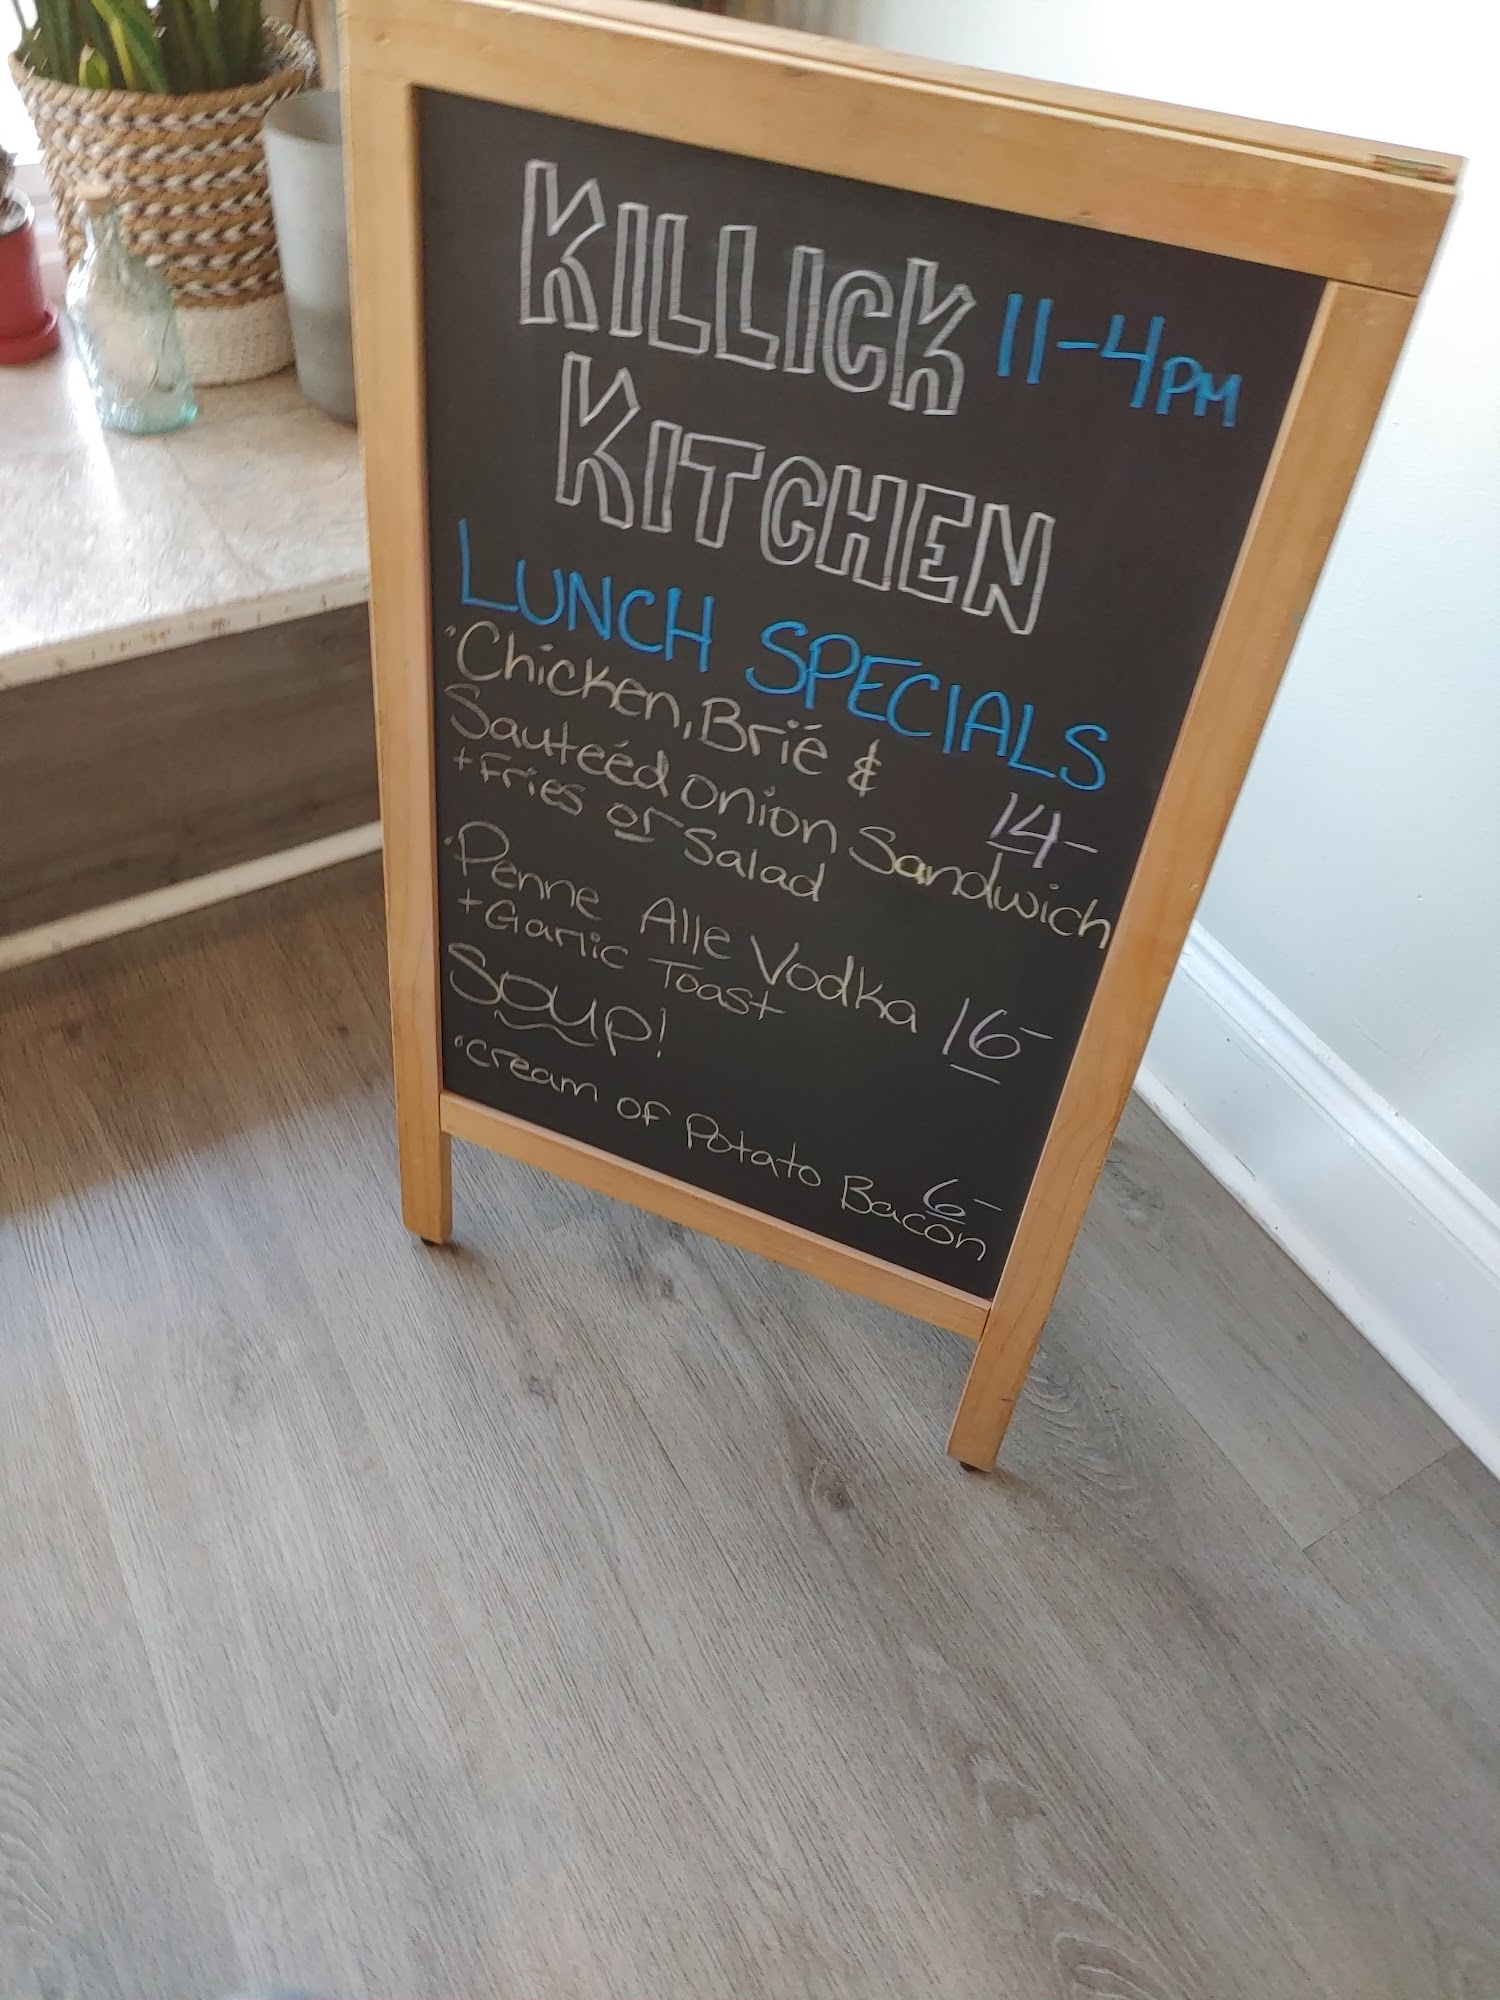 KILLICK 11-4PM
KITCHEN
LUNCH SPECIALS
·Chicken, Brié &
Sauteéd onion Sandwich 14-
+Fries or Salad
·Penne Alle Vodka 16-
+Garlic Toast
Soup!
·cream of Potato Bacon 6-